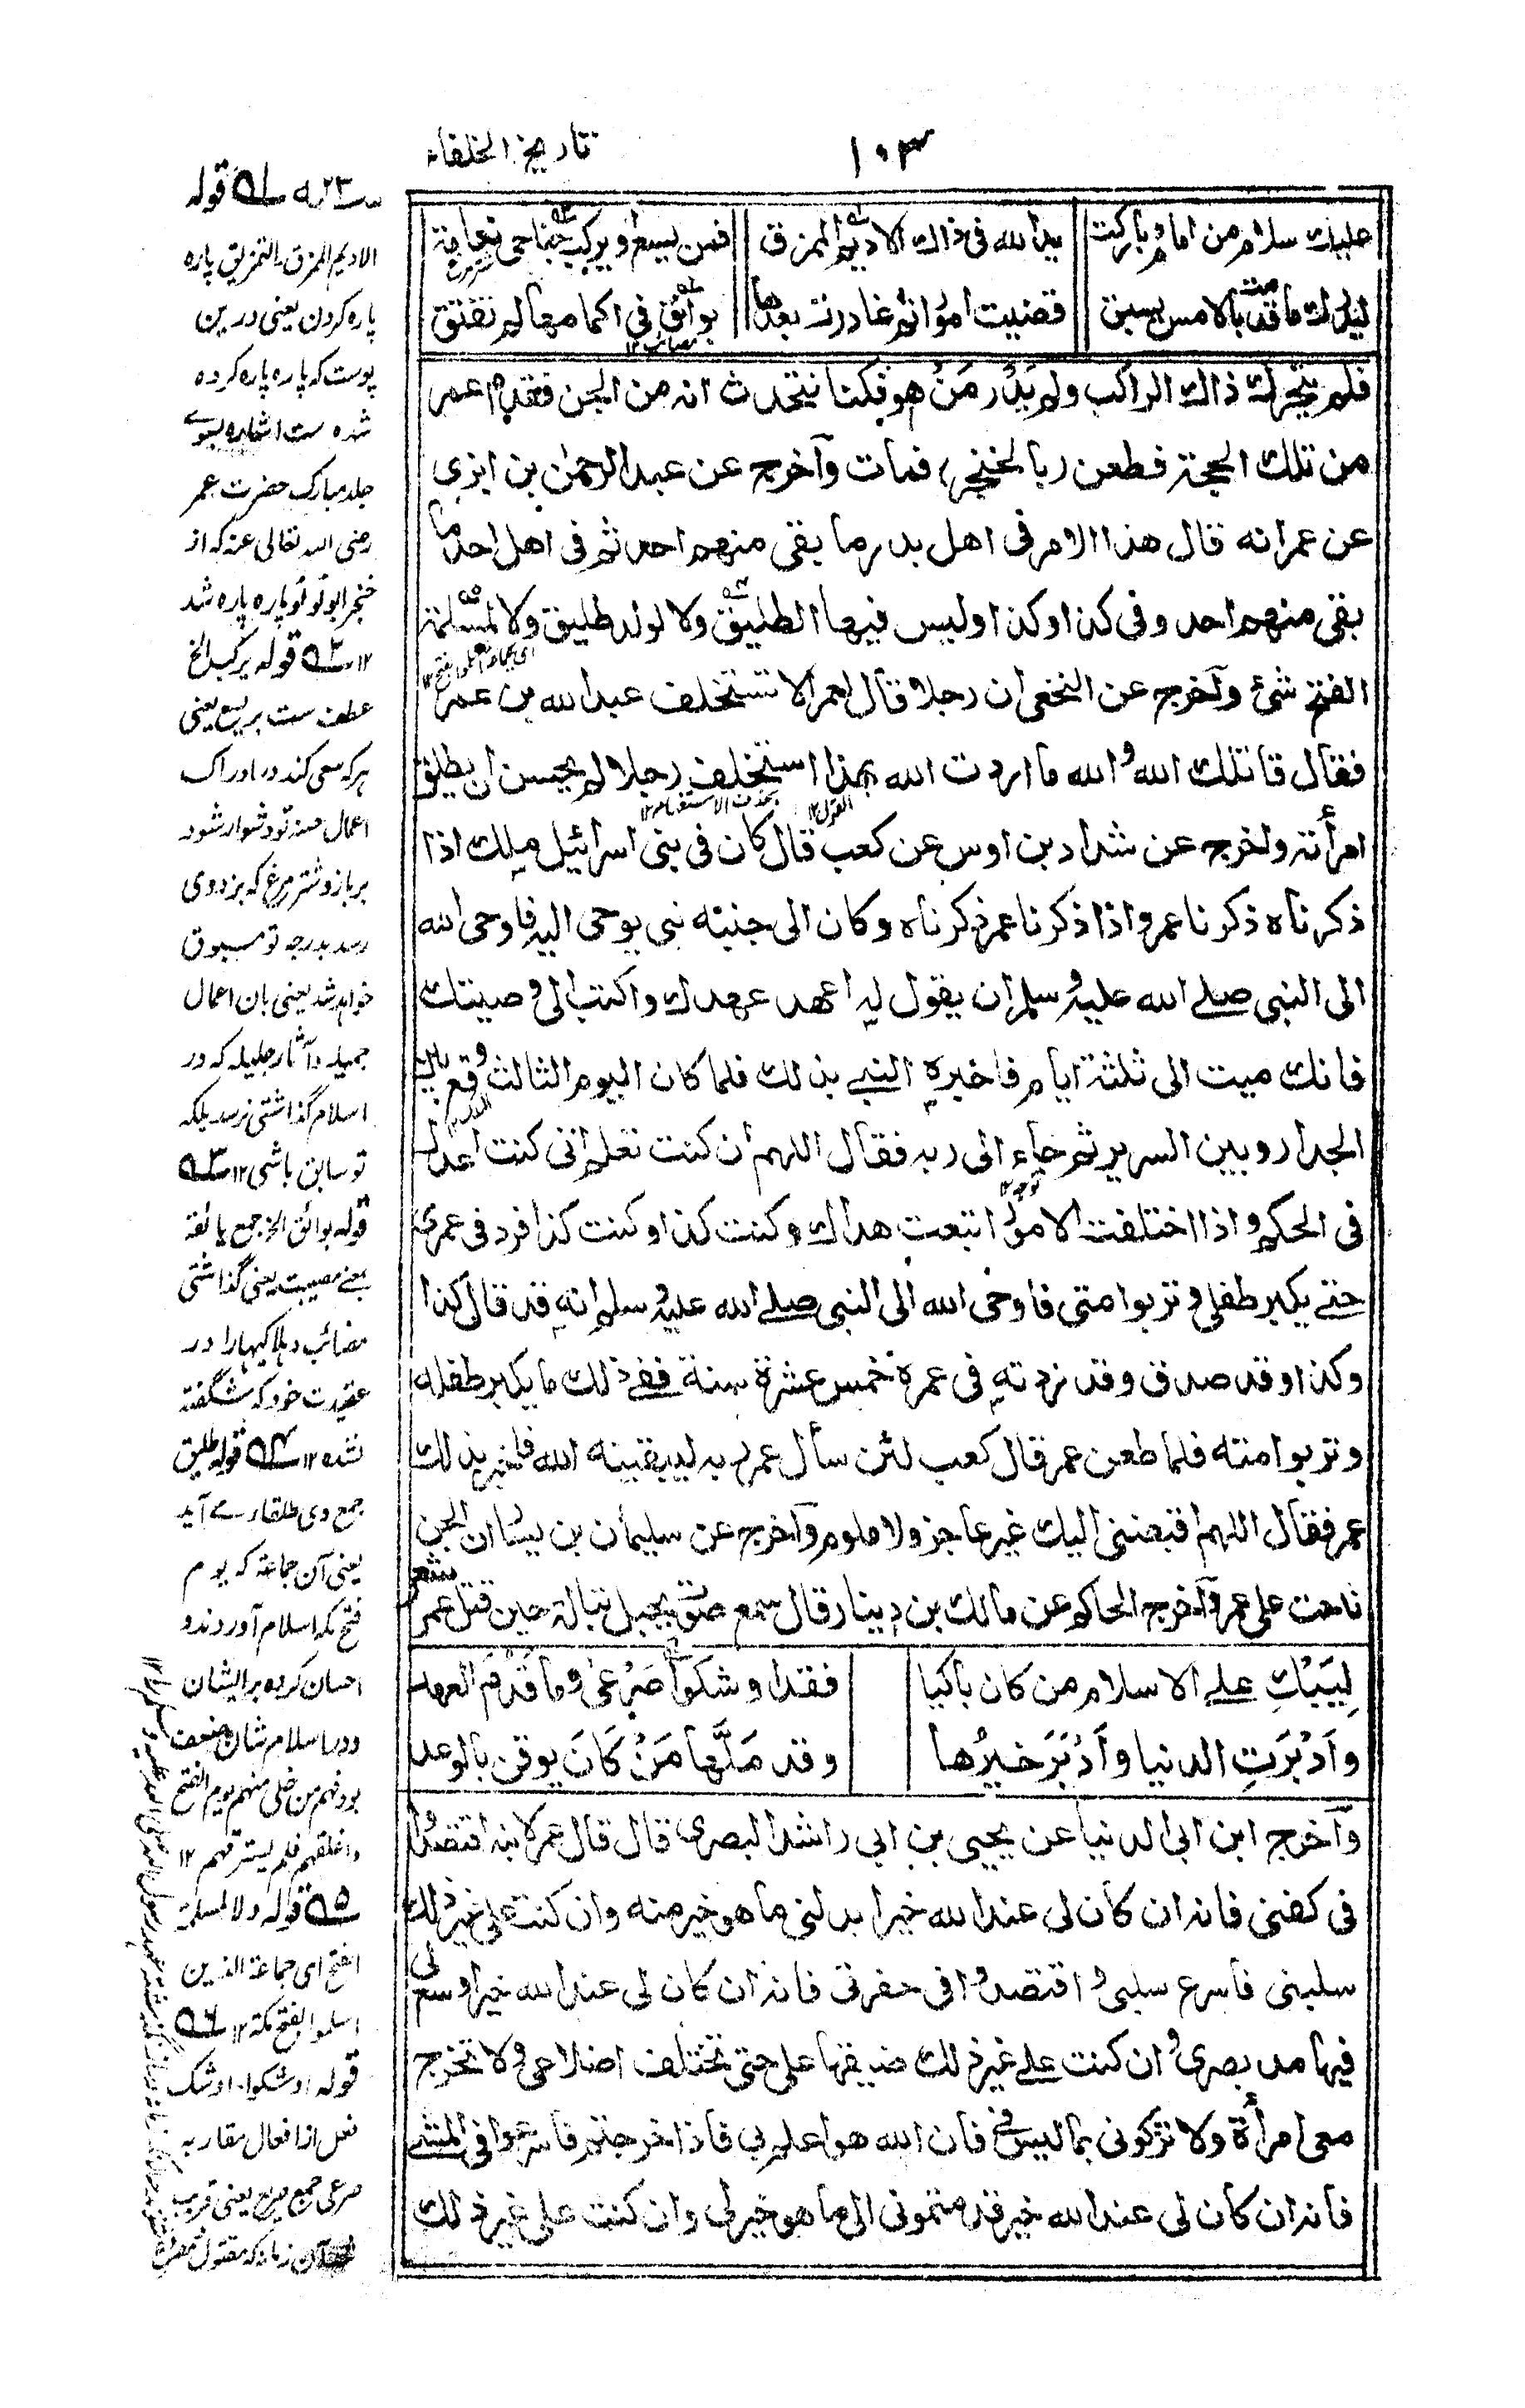 ۱۰۳
تاريخ الخلفاء
عليك سلام من امام وباركت
يد الله فى ذاك الاديم الممزق
فمن يسع او يركب جناحى نعامة
ليدرك ما قدمت بالامس يسبق
قضيت امورا ثم غادرت بعدها
بوائق فى اكمامها لم تفتق
فلم يتحرك ذاك الراكب ولم يدر من هو فكنا نتحدث انه من الجن فقدم عمر
من تلك الحجة فطعن بالخنجر فمات وآخرج عن عبد الرحمن بن ابزى
عن عمر انه قال هذا الامر فى اهل بدر ما بقى منهم احد ثم فى اهل احد ما
بقى منهم احد وفى كذا وكذا وليس فيها الطليق ولا لولد طليق ولا لمسلمة
الفتح شئ وآخرج عن النخعى ان رجلا قال لعمر الا تستخلف عبد الله بن عمر
فقال قاتلك الله والله ما اردت الله بهذا استخلف رجلا لم يحسن ان يطلق
امرأته واخرج عن شداد بن اوس عن كعب قال كان فى بنى اسرائيل ملك اذا
ذكرناه ذكرنا عمر واذا ذكرنا عمر ذكرناه وكان الى جنبه نبى يوحى اليه فاوحى الله
الى النبى صلے الله عليه وسلم ان يقول له اعهد عهدك واكتب الى وصيتك
فانك ميت الى ثلثة ايام فاخبره النبے بذلك فلما كان اليوم الثالث وقع بين
الجدار وبين السرير ثم جاء الى ربه فقال اللهم ان كنت تعلم انى كنت اعدل
فى الحكم واذا اختلفت الامور اتبعت هداك وكنت كذا وكنت كذا فزد فى عمرى
حتے يكبر طفلى وتربوا متى فاوحى الله الى النبى صلے الله عليه وسلم انه قد قال كذا
وكذا وقد صدق وقد زدته فى عمره خمس عشرة سنة ففے ذلك ما يكبر طفله
وتربوا منته فلما طعن عمر قال كعب لئن سأل عمر ربه ليبقينه الله فاخبر بذلك
عمر فقال اللهم اقبضنى اليك غير عاجز ولا ملوم وآخرج عن سليمان بن يسار ان الجن
ناحت على عمر وآخرج الحاكم عن مالك بن دينار قال سمع صوت بجبل تبالة حين قتل عمر شعر
لِيَبْكِ علے الاسلام من كان باكيا
فقد اوشكوا صَرْعٰى وما قَدُمَ العهد
وَاَدْبَرَتِ الدنيا وَاَدْبَرَ خيرُها
وقد مَلَّها مَنْ كَانَ يوقن بالوعد
وآخرج ابن ابى الدنيا عن يحيى بن ابى راشد البصرى قال قال عمر لابنه اقتصدوا
فى كفنى فانه ان كان لى عند الله خيرا بدلنى ما هو خير منه وان كنت على غير ذلك
سلبنى فاسرع سلبى واقتصدوا فى حفرتى فانه ان كان لى عند الله خيرا وسع لى
فيها مد بصرى وان كنت علے غير ذلك ضيقها على حتى تختلف اضلاعى ولا تخرج
معى امرأة ولا تزكونى بما ليس فى فان الله هو اعلم بى فاذا خرجتم فاسرعوا فى المشے
فانه ان كان لى عند الله خير قدمتمونى الى ما هو خير لى وان كنت على غير ذلك
قوله
الاديم الممزق التمزيق پاره
پاره كردن يعنى در ين
پوست كه پاره پاره كرده
شده ست اشاره بسوے
جلد مبارك حضرت عمر
رضى الله تعالى عنه كه از
خنجر ابو لؤلؤ پاره پاره شد
۱۲ قوله يركب الخ
عطف ست بر يسع يعنى
هر كه سعى كند در ادراك
اعمال حسنه تو دشوار شود
بر بازو شتر مرغ كه بزودى
رسد بدرجه تو مسبوق
خواهد شد يعنى بان اعمال
جميله و آثار جليله كه در
اسلام گذاشتى نرسد بلكه
تو سابق باشى ۱۲
قوله بوائق الخ جمع بائقة
بمعنے مصيبت يعنى گذاشتى
مصائب و بلاكيها را در
خود كه شگفته
نشده ۱۲ قوله طليق
جمع وى طلقا مے آيد
يعنى آن جماعة كه يوم
فتح مكه اسلام آوردند و
احسان كرده بر ايشان
ودر اسلام شان ضعف
بود فهم من خلى منهم يوم الفتح
واطلقهم فلم يسترقهم ۱۲
قوله ولا لمسلمة
الفتح اى جماعة الذين
اسلموا لفتح مكة ۱۲
قوله اوشكوا اوشك
فعل از افعال مقاربه
صرعى جمع صريع يعنى قريب
آن زمانه كه مقتول